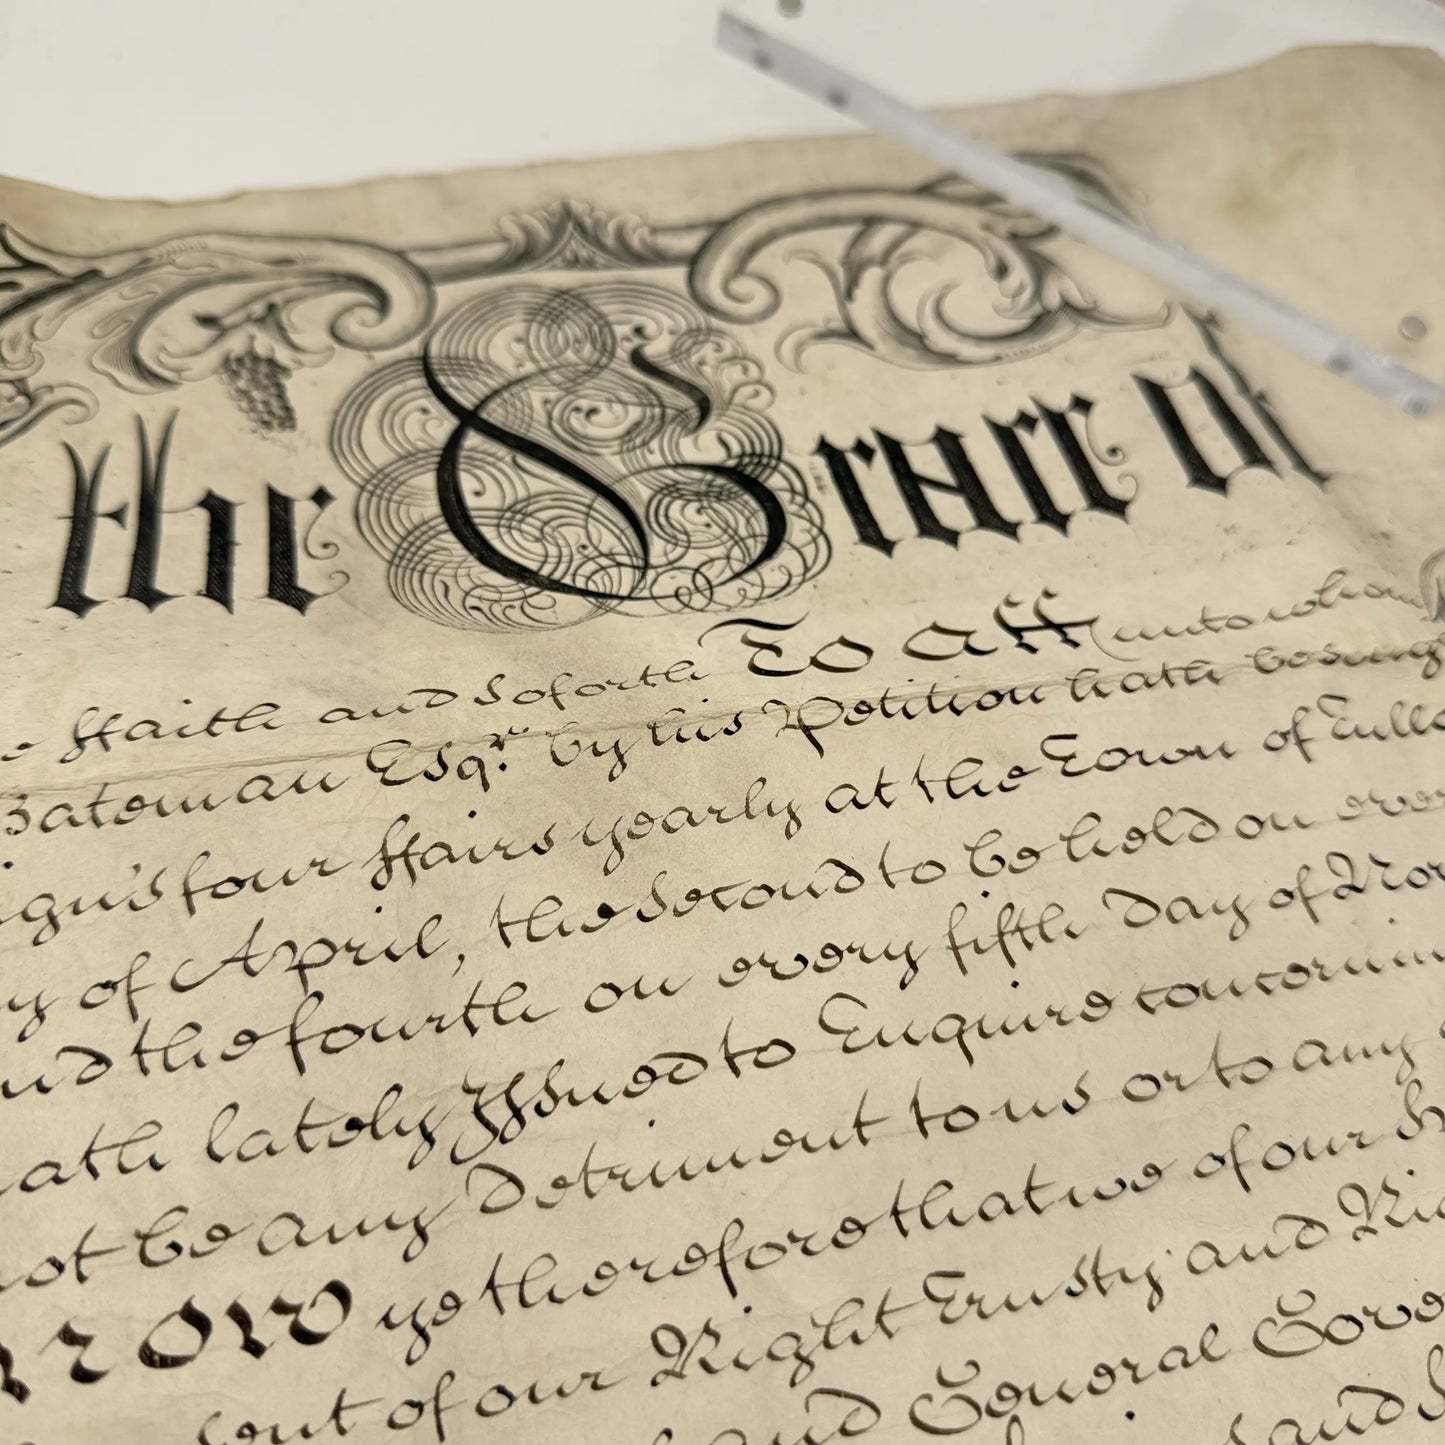 the Grace of
ffaith and Soforth To all unto whom
Bateman Esqr. by his Petition hath besough
signs four ffairs yearly at the Town of Tullo
of April, the Second to be held on ever
and the fourth on every fifth Day of Nov
hath lately Issued to Enquire concernin
not be any Detriment to us or to any
KNOW ye therefore that we of our
of our Right Trusty and Ri
and General Gove
and